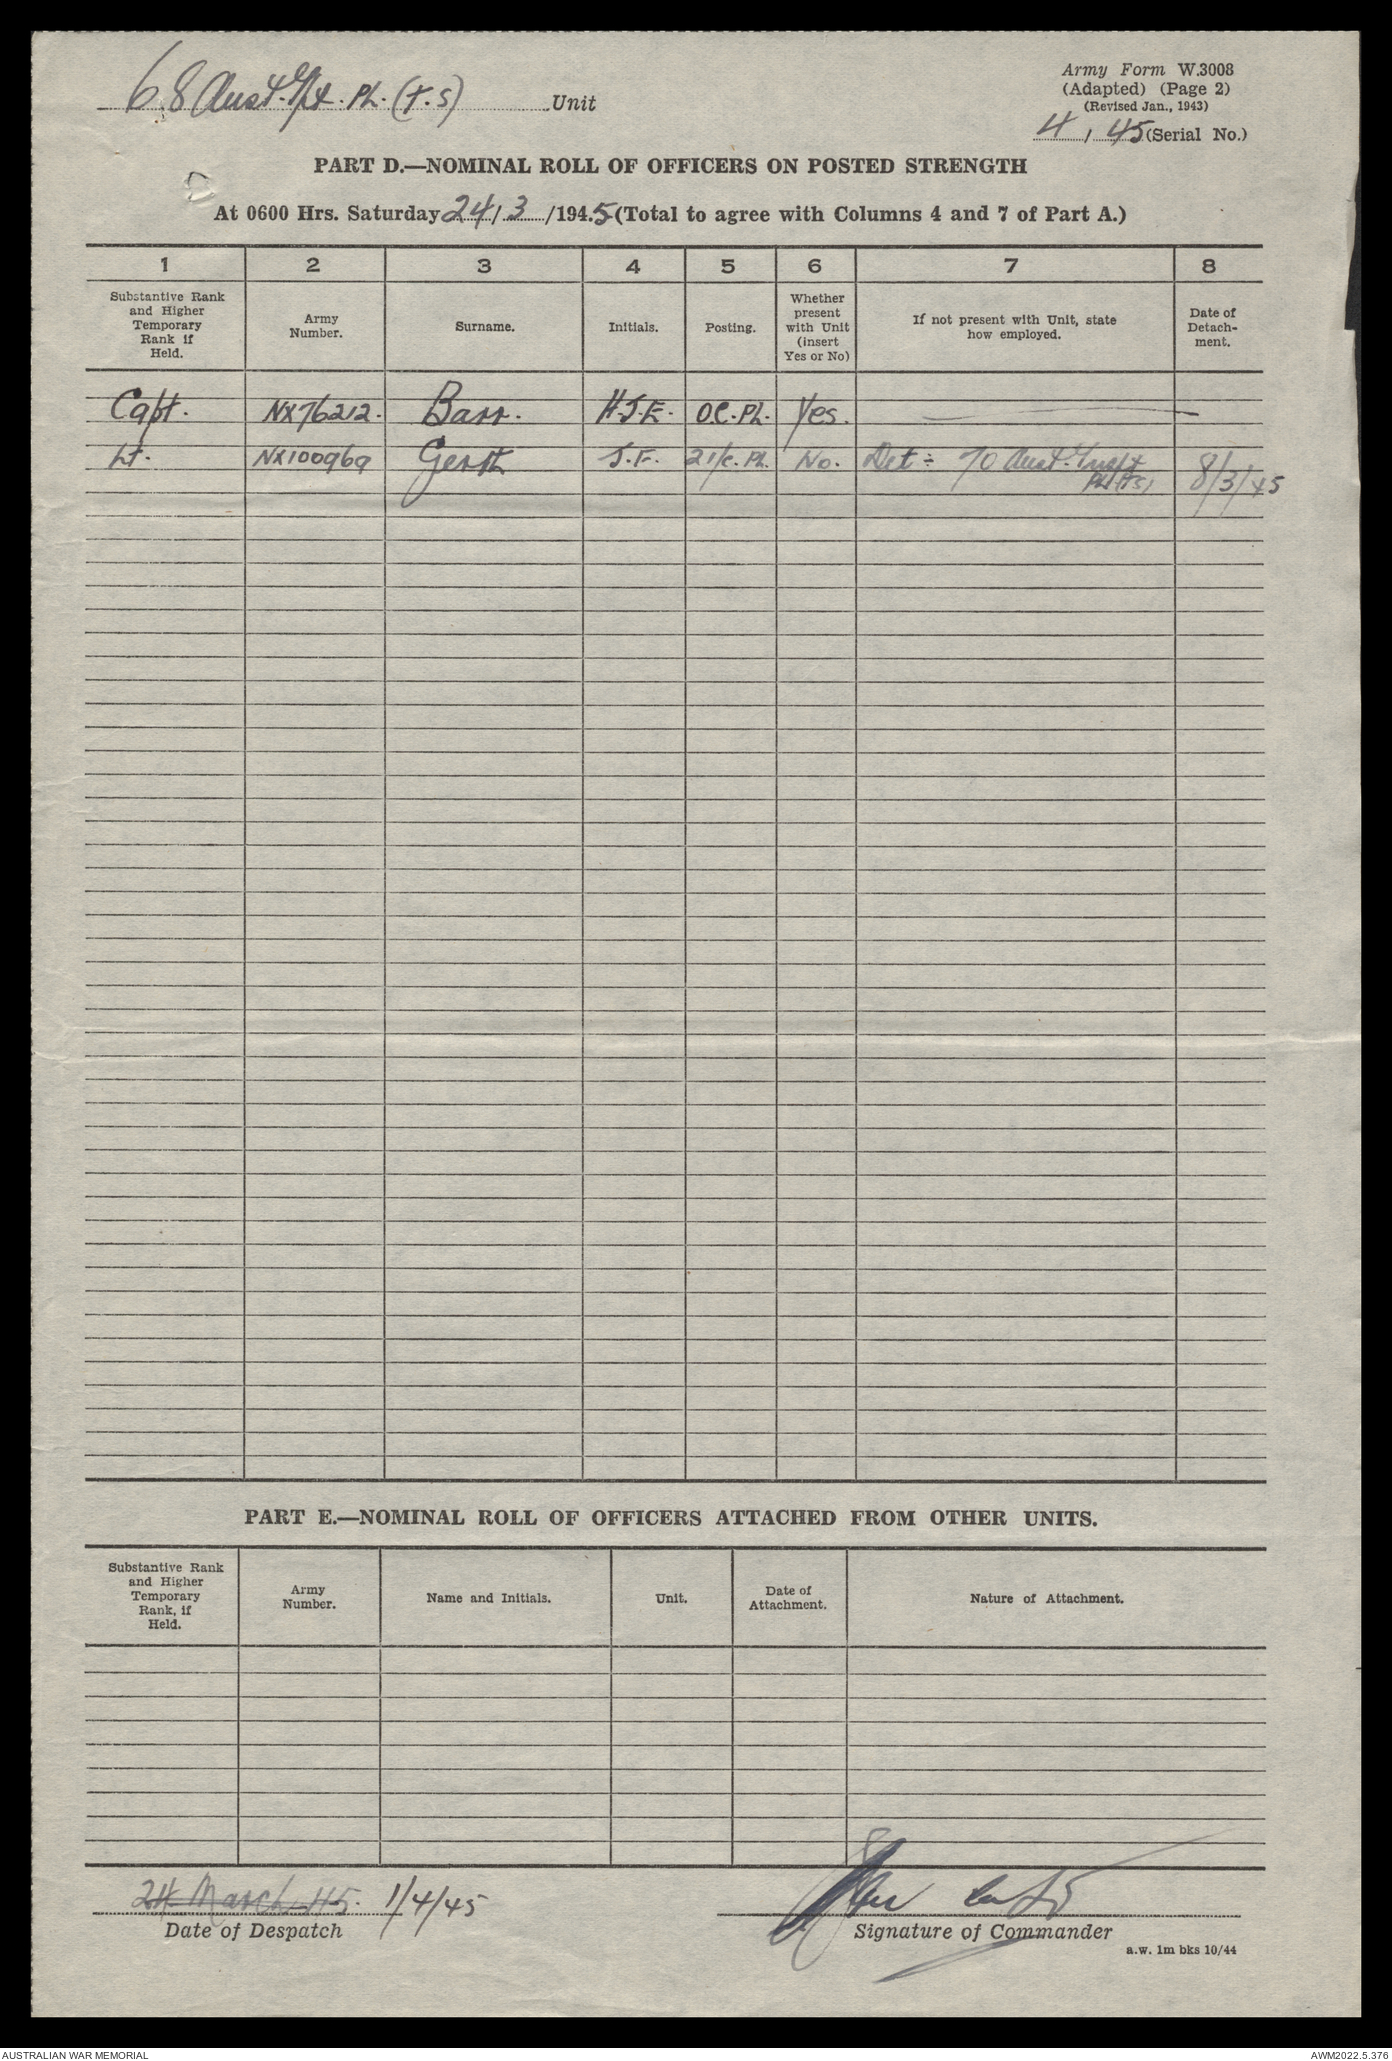 68 Aust. Tpt. Pl. (T.S) Unit
Army Form W.3008
(Adapted) (Page 2)
(Revised Jan., 1943)
4, 45 (Serial No.)
PART D.—NOMINAL ROLL OF OFFICERS ON POSTED STRENGTH
At 0600 Hrs. Saturday 24/3/1945 (Total to agree with Columns 4 and 7 of Part A.)
1 2 3 4 5 6 7 8
Substantive Rank and Higher Temporary Rank if Held.
Army Number.
Surname.
Initials.
Posting.
Whether present with Unit (insert Yes or No)
If not present with Unit, state how employed.
Date of Detachment.
Capt. NX76212. Barr. H.J.E. O.C. Pl. Yes.
Lt. NX100969 Gerth J.F. 2 i/c. Pl. No. Det :- 70 Aust. Pl (TS) 8/3/45
PART E.—NOMINAL ROLL OF OFFICERS ATTACHED FROM OTHER UNITS.
Substantive Rank and Higher Temporary Rank, if Held.
Army Number.
Name and Initials.
Unit.
Date of Attachment.
Nature of Attachment.
24 March 45. 1/4/45
Date of Despatch
Signature of Commander
a.w. 1m bks 10/44
AUSTRALIAN WAR MEMORIAL
AWM2022.5.376